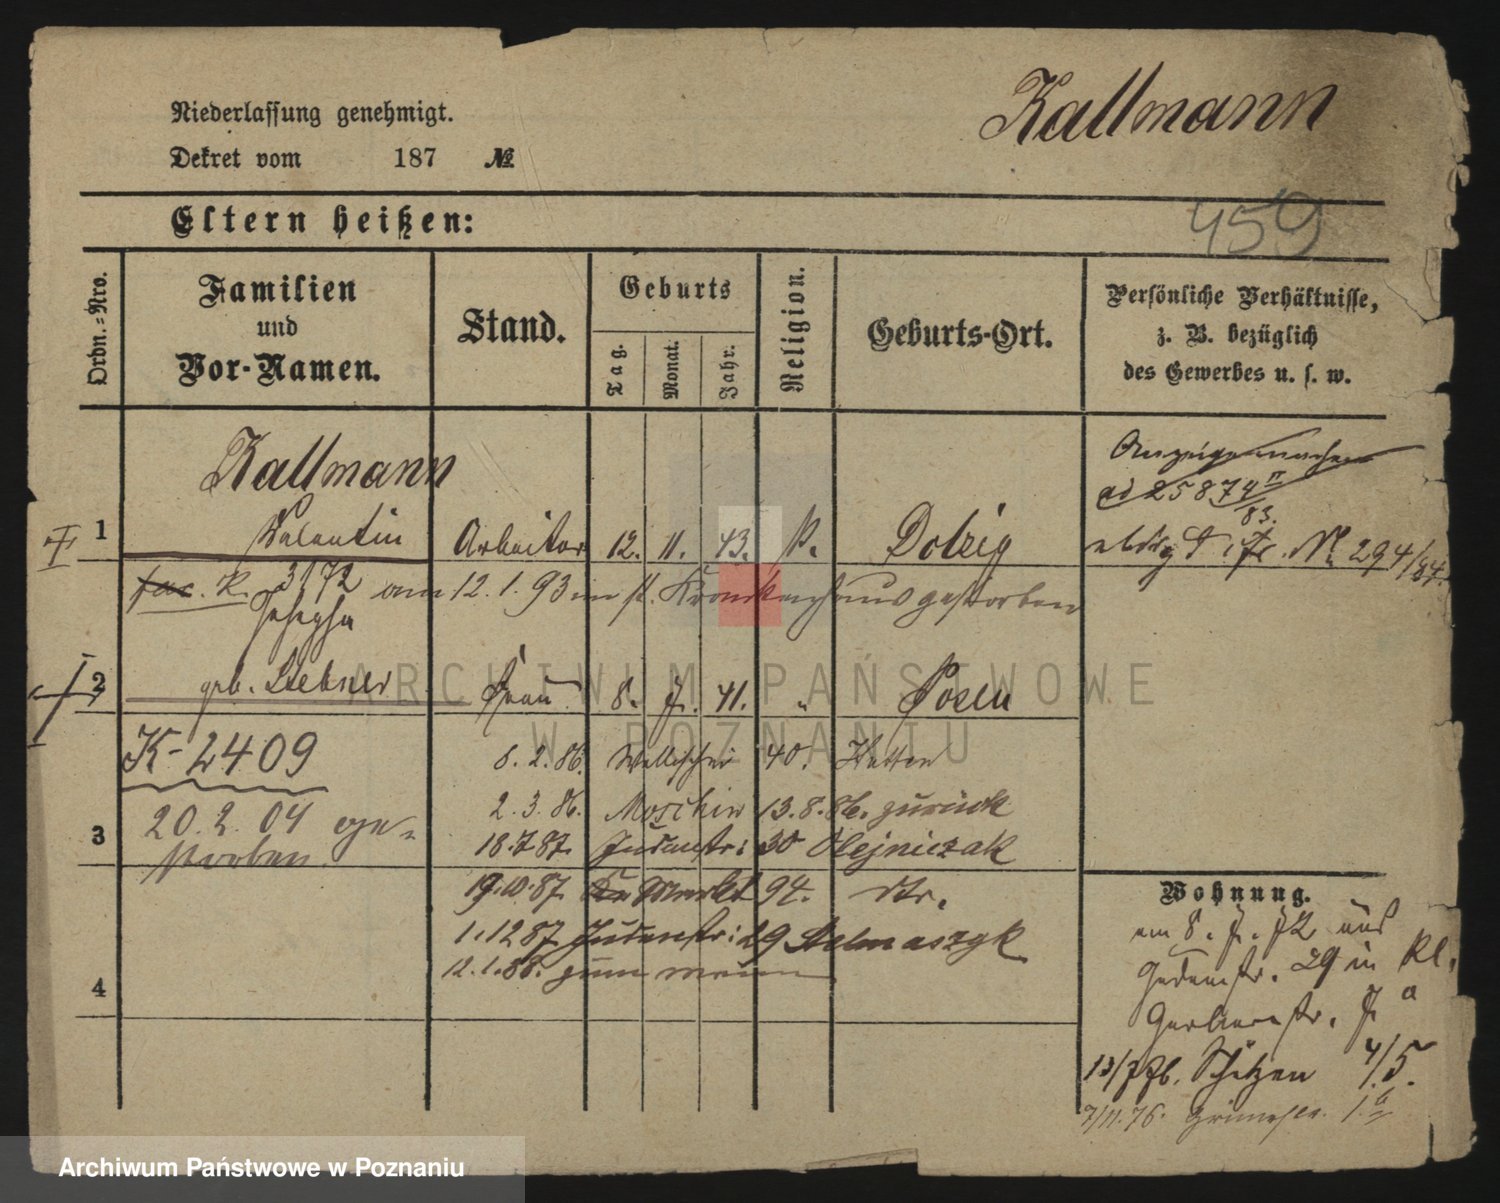 Kallmann
Niederlassung genehmigt.
Dekret vom 187 №
459
Eltern heißen:
Ordn.=Nro.
Familien
und
Vor-Namen.
Stand.
Geburts
Tag.
Monat.
Jahr.
Religion.
Geburts-Ort.
Persönliche Verhältnisse,
z. B. bezüglich
des Gewerbes u. s. w.
Kallmann
Anzeige machen
ad 25874 II
83.
1 Valentin Arbeiter 12. 11. 43. k. Dolzig
№ 294/84.
R. 3172 am 12. 1. 93 im st. Krankenhaus gestorben
Josepha
2 geb. Stebner Frau 8. 7. 41. " Posen
K-2409
8. 2. 86. Wallischei 40. Ketten
20. 2. 04 ge-
storben
2. 3. 86. Moschin 13. 8. 86. zurück
3
18. 7 87. Judenstr: 30 Olejniczak
19. 10. 87. Markt 94. dtr.
1. 12 87 Judenstr: 29 Stelmaszyk
12. 1. 88.
4
Wohnung.
am 8. 7. 72 aus
Judenstr. 29 in kl.
Gerberstr. 7 a
13/7 76. Schützen 4/5.
7/11. 76. Grünestr. 1. b
ARCHIWUM PAŃSTWOWE
W POZNANIU
Archiwum Państwowe w Poznaniu